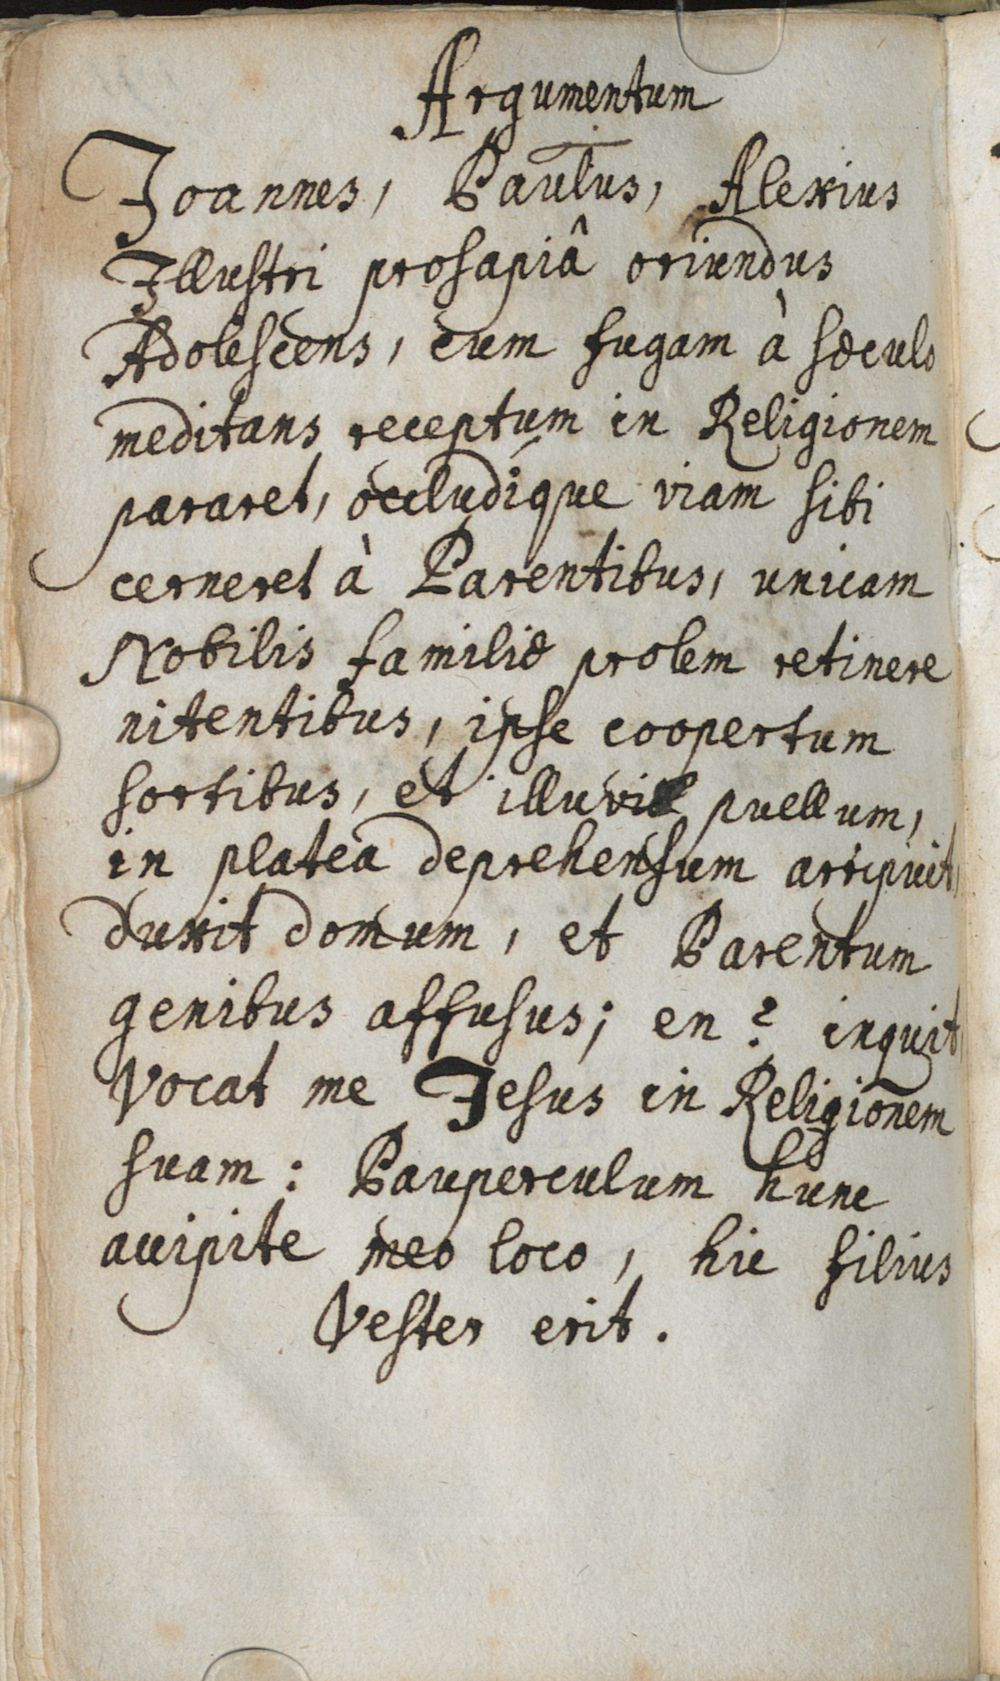 Argumentum
Joannes, Paulus, Alexius
Illustri prosapiâ oriundus
Adolescens, cum fugam à sæculo
meditans receptum in Religionem
pararet, occludíque viam sibi
cerneret à Parentibus, unicam
Nobilis familiæ prolem retinere
nitentibus, ipse coopertum
sortibus, et illuvie puellum,
in platea deprehensum arripuit,
duxit domum, et Parentum
genibus affusus; en? inquit,
Vocat me Jesus in Religionem
suam: Pauperculum hunc
accipite meo loco, hic filius
Vester erit.